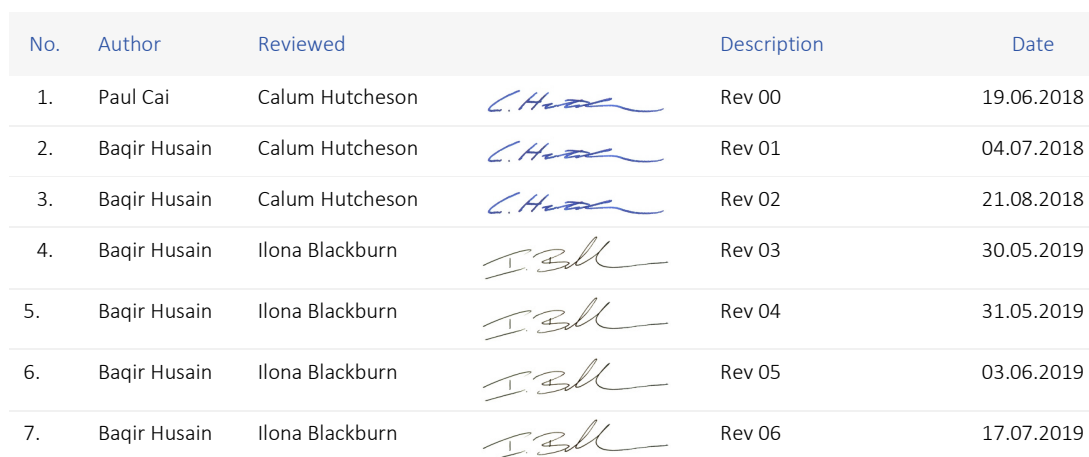 No. Author Reviewed Description Date
1. Paul Cai Calum Hutcheson C. Hutch Rev 00 19.06.2018
2. Baqir Husain Calum Hutcheson C. Hutch Rev 01 04.07.2018
3. Baqir Husain Calum Hutcheson C. Hutch Rev 02 21.08.2018
4. Baqir Husain Ilona Blackburn I. Bll Rev 03 30.05.2019
5. Baqir Husain Ilona Blackburn I. Bll Rev 04 31.05.2019
6. Baqir Husain Ilona Blackburn I. Bll Rev 05 03.06.2019
7. Baqir Husain Ilona Blackburn I. Bll Rev 06 17.07.2019